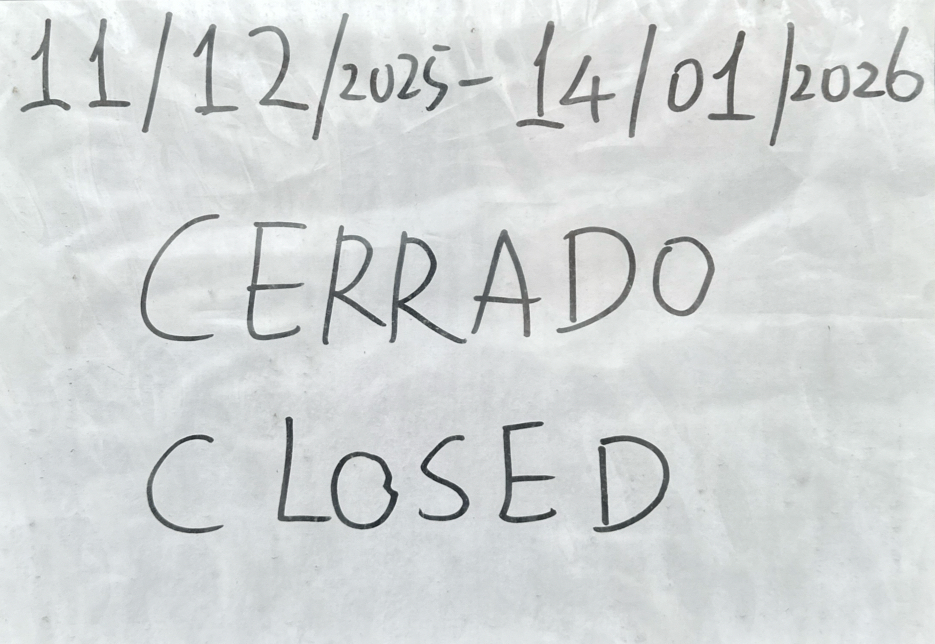 11/12/2025- 14/01/2026
CERRADO
CLOSED